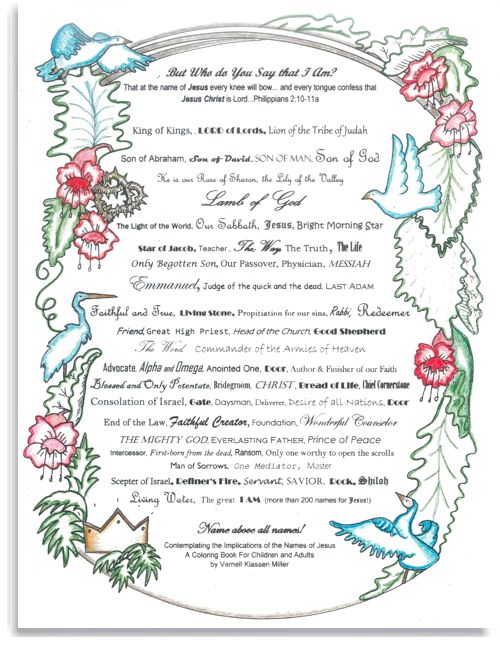 But Who do You Say that I Am?
That at the name of Jesus every knee will bow... and every tongue confess that
Jesus Christ is Lord...Philippians 2:10-11a
King of Kings, , LORD of Lords, Lion of the Tribe of Judah
Son of Abraham, Son of David, SON OF MAN, Son of God
He is our Rose of Sharon, the Lily of the Valley
Lamb of God
The Light of the World, Our Sabbath, Jesus, Bright Morning Star
Star of Jacob, Teacher, The Way The Truth, The Life
Only Begotten Son, Our Passover, Physician, MESSIAH
Emmanuel, Judge of the quick and the dead, LAST ADAM
Faithful and True, Living Stone, Propitiation for our sins, Rabbi, Redeemer
Friend, Great High Priest, Head of the Church, Good Shepherd
The Word Commander of the Armies of Heaven
Advocate, Alpha and Omega, Anointed One, Door, Author & Finisher of our Faith
Blessed and Only Potentate, Bridegroom, CHRIST, Bread of Life, Chief Cornerstone
Consolation of Israel, Gate, Daysman, Deliverer, Desire of all Nations, Door
End of the Law, Faithful Creator, Foundation, Wonderful Counselor
THE MIGHTY GOD, EVERLASTING FATHER, Prince of Peace
Intercessor, First-born from the dead, Ransom, Only one worthy to open the scrolls
Man of Sorrows, One Mediator, Master
Scepter of Israel, Refiner's Fire, Servant, SAVIOR, Rock, Shiloh
Living Water, The great I AM (more than 200 names for Jesus!)
Name above all names!
Contemplating the Implications of the Names of Jesus
A Coloring Book For Children and Adults
by Vernell Klassen Miller